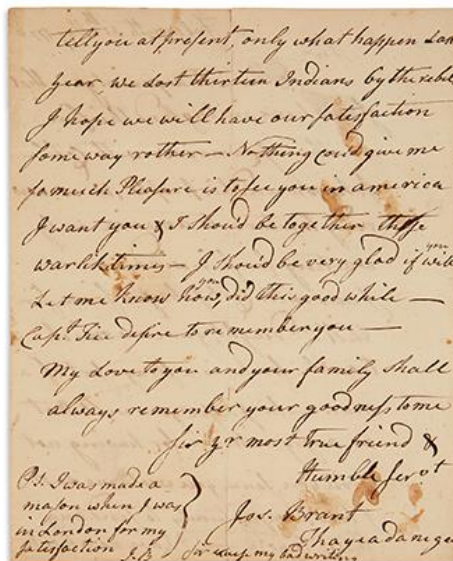 tell you at present, only what happen Last
year, we Lost thirteen Indians by the rebel
I hope we will have our satesfaction
some way rother — Nothing could give me
so much Pleasure is to see you in america
I want you & I should be together these
warlik times — I shou'd be very glad if you will
Let me know how, you did this good while —
Capt. desire to remember you —
My Love to you and your family shall
always remember your goodness to me
Sir yr. most true friend &
Humble Servt
Jos. Brant
Thayeadanegea
PS. I was made a
mason when I was
in London for my
satesfaction J.B
Sir my bad writing